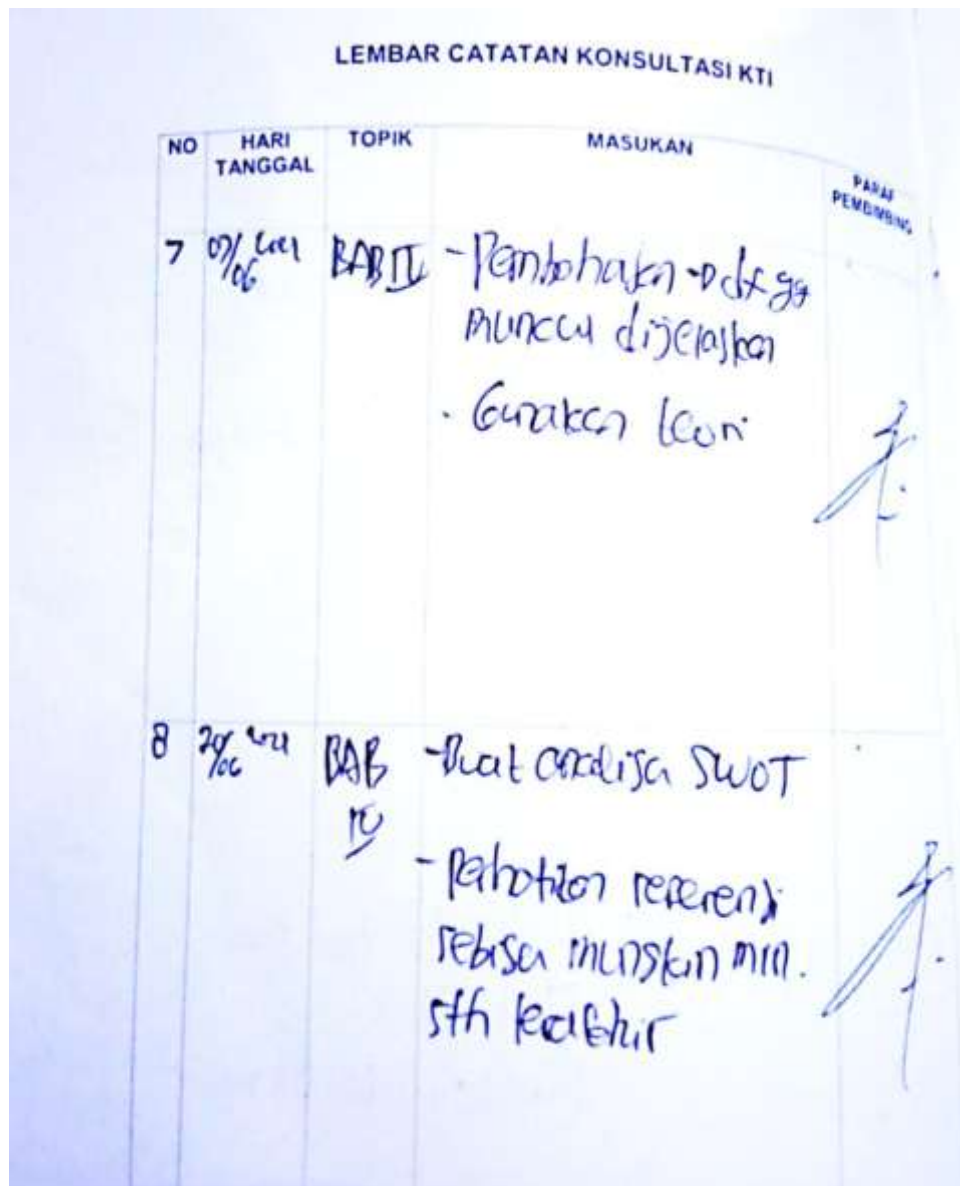 LEMBAR CATATAN KONSULTASI KTI
NO HARI TANGGAL TOPIK MASUKAN PARAF PEMBIMBING
7 07/06 2021 BAB IV - Pembahasan → dx yg
muncul dijelaskan
. Gunakan teori
8 /06 2021 BAB IV - Buat analisa SWOT
- perhatikan referensi
sebisa mungkin min.
5th terakhir